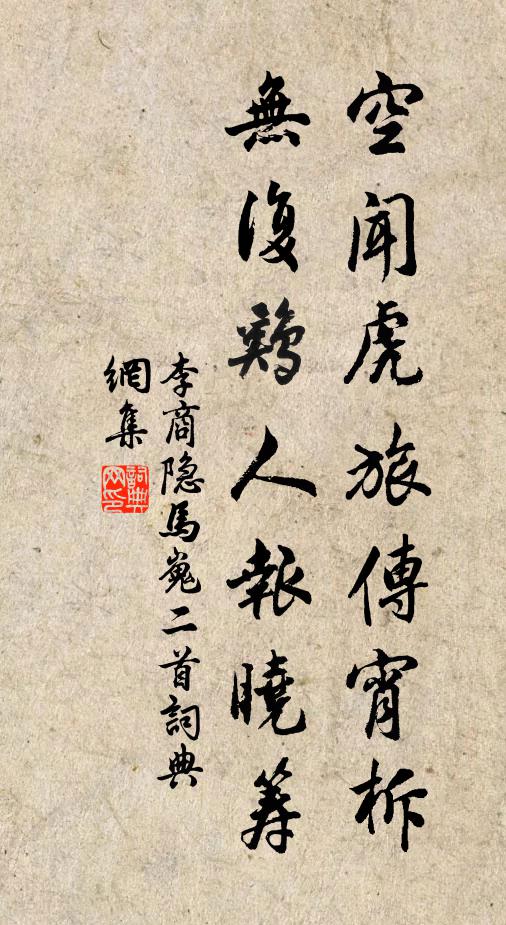 空聞虎旅傳宵柝
無復鷄人報曉筹
李商隐馬嵬二首詞典
網集
詞典網印